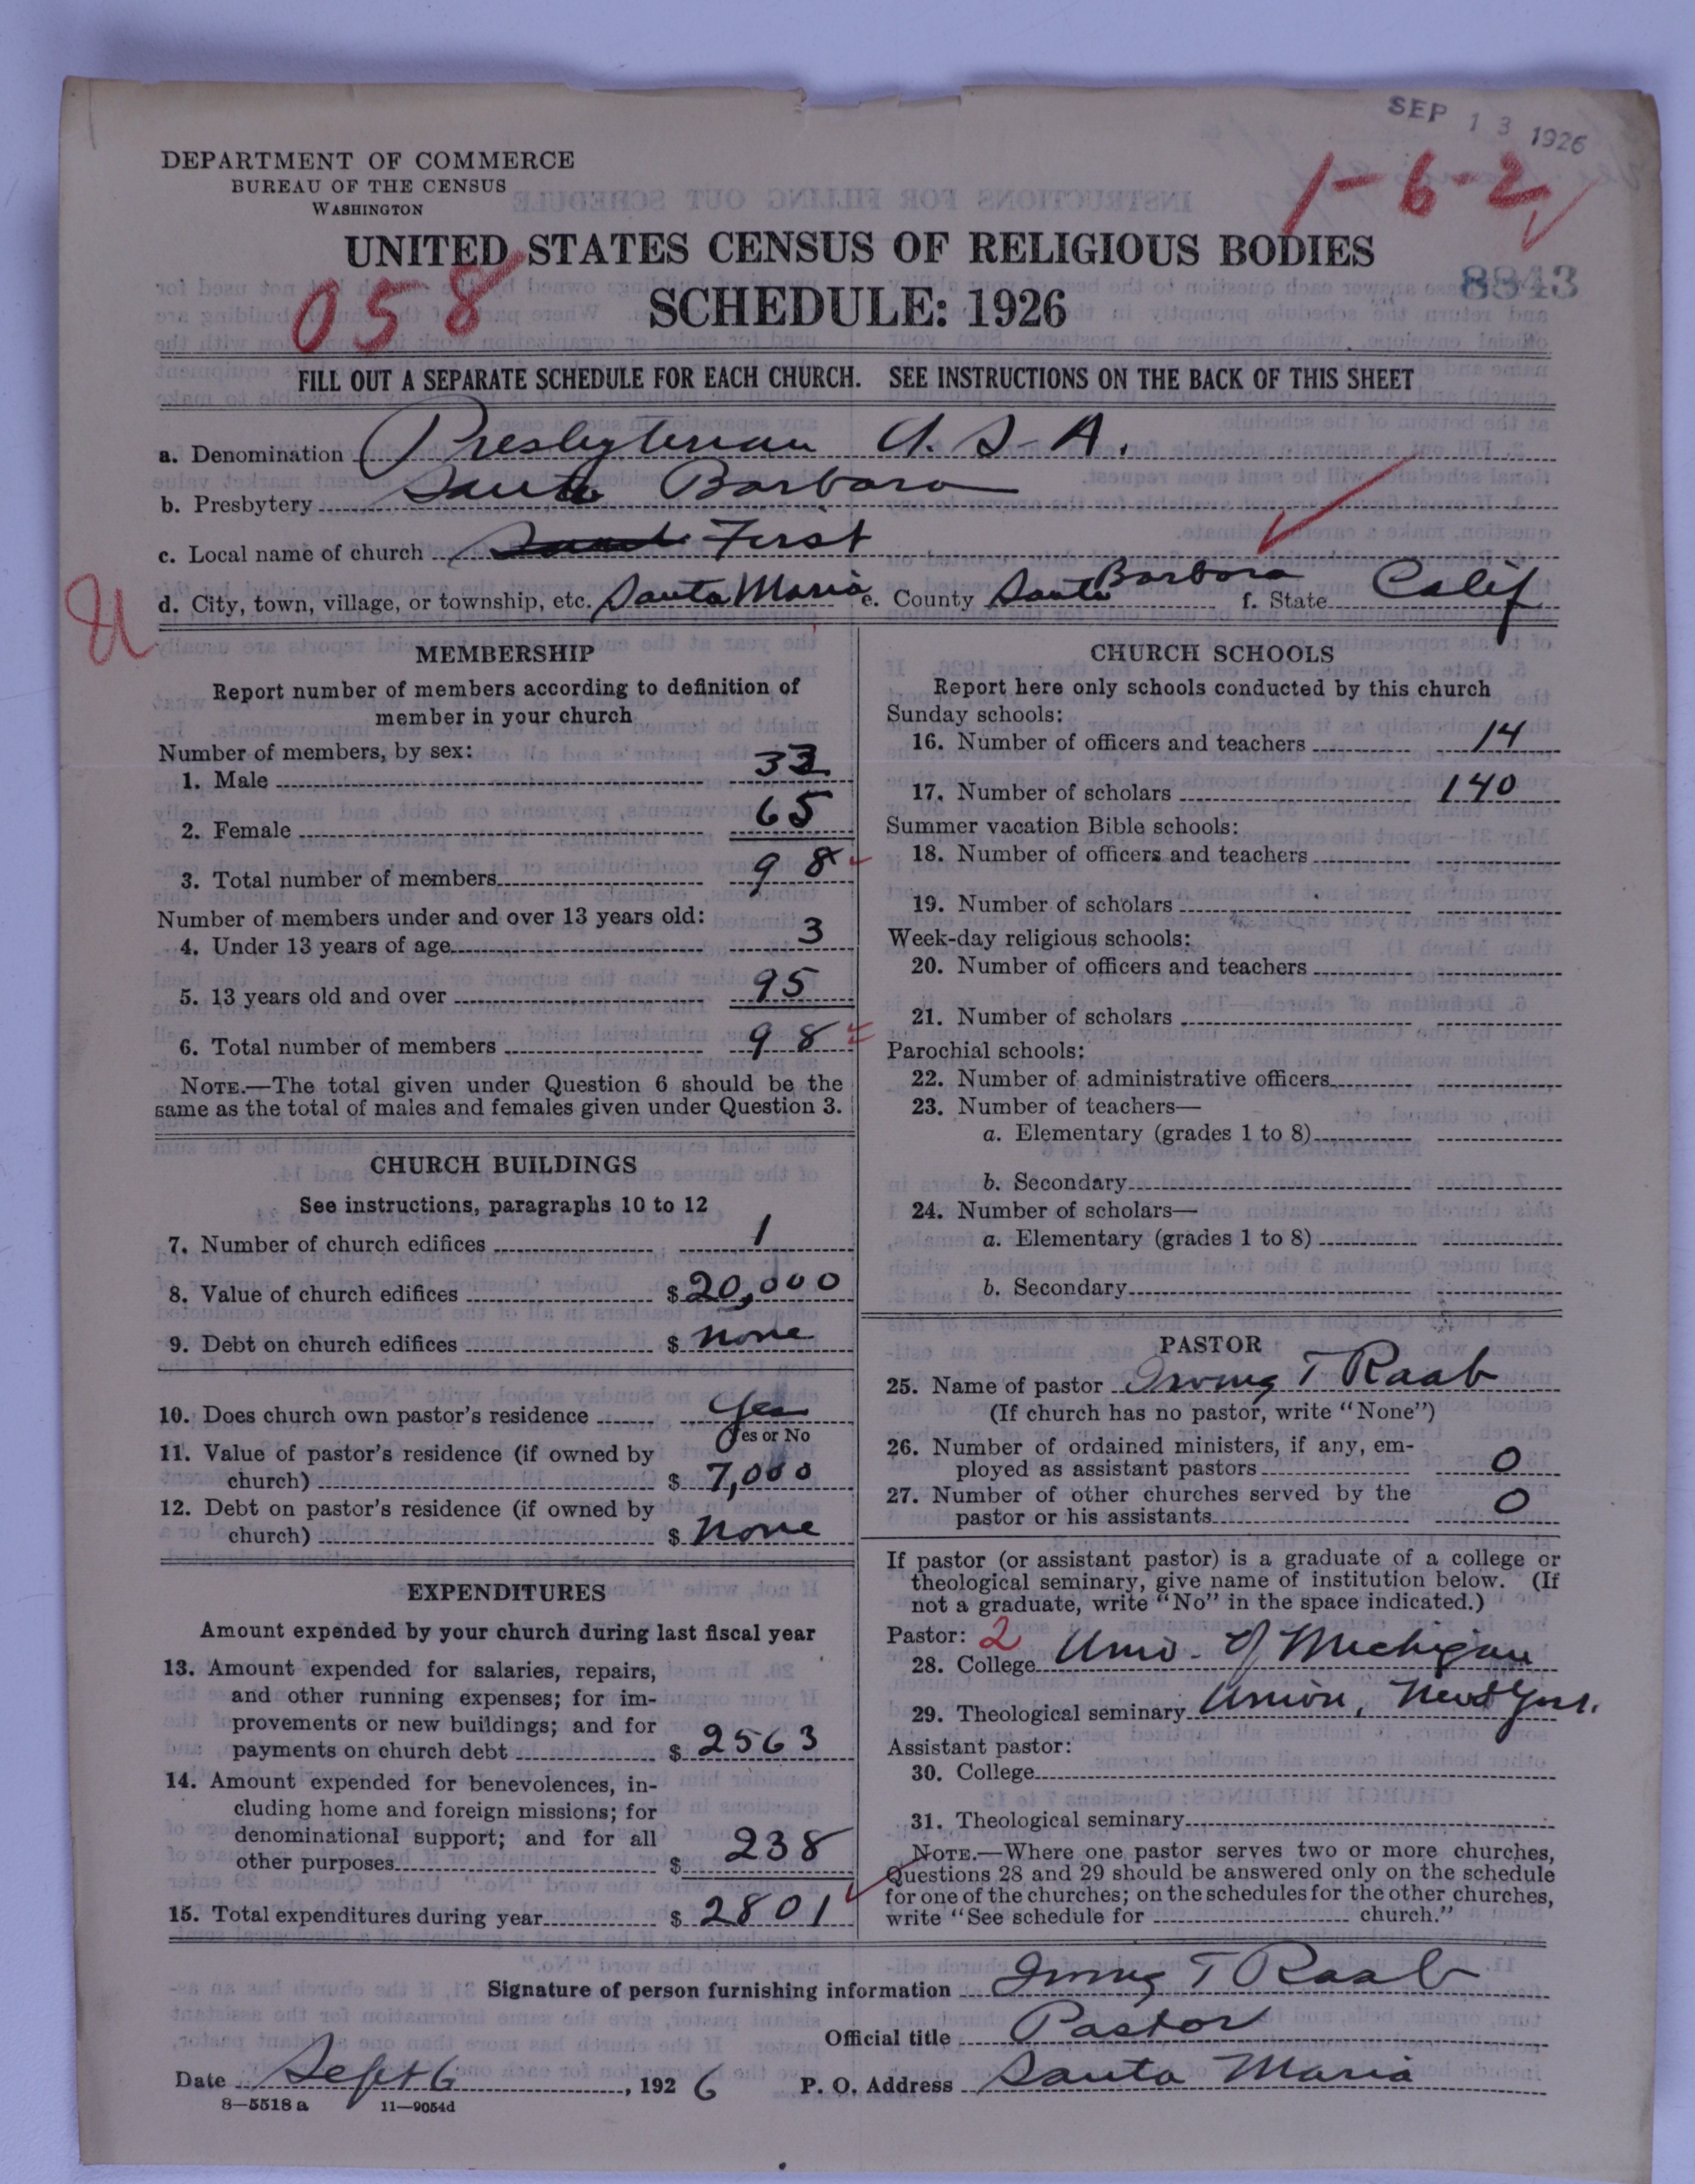 SEP 13 1926
1-6-2
DEPARTMENT OF COMMERCE
BUREAU OF THE CENSUS
WASHINGTON
UNITED STATES CENSUS OF RELIGIOUS BODIES
058
SCHEDULE: 1926
8843
FILL OUT A SEPARATE SCHEDULE FOR EACH CHURCH. SEE INSTRUCTIONS ON THE BACK OF THIS SHEET
a. Denomination Presbyterian U. S. A.
b. Presbytery Santa Barbara
c. Local name of church First
d. City, town, village, or township, etc. Santa Maria e. County Santa Barbara f. State Calif
MEMBERSHIP
Report number of members according to definition of
member in your church
Number of members, by sex:
1. Male 33
2. Female 65
3. Total number of members 98
Number of members under and over 13 years old:
4. Under 13 years of age 3
5. 13 years old and over 95
6. Total number of members 98
NOTE.—The total given under Question 6 should be the
same as the total of males and females given under Question 3.
CHURCH BUILDINGS
See instructions, paragraphs 10 to 12
7. Number of church edifices 1
8. Value of church edifices $ 20,000
9. Debt on church edifices $ none
10. Does church own pastor's residence Yes
Yes or No
11. Value of pastor's residence (if owned by
church) $ 7,000
12. Debt on pastor's residence (if owned by
church) $ none
EXPENDITURES
Amount expended by your church during last fiscal year
13. Amount expended for salaries, repairs,
and other running expenses; for im-
provements or new buildings; and for
payments on church debt $ 2563
14. Amount expended for benevolences, in-
cluding home and foreign missions; for
denominational support; and for all
other purposes $ 238
15. Total expenditures during year $ 2801
CHURCH SCHOOLS
Report here only schools conducted by this church
Sunday schools:
16. Number of officers and teachers 14
17. Number of scholars 140
Summer vacation Bible schools:
18. Number of officers and teachers
19. Number of scholars
Week-day religious schools:
20. Number of officers and teachers
21. Number of scholars
Parochial schools:
22. Number of administrative officers
23. Number of teachers—
a. Elementary (grades 1 to 8)
b. Secondary
24. Number of scholars—
a. Elementary (grades 1 to 8)
b. Secondary
PASTOR
25. Name of pastor Irving T Raab
(If church has no pastor, write "None")
26. Number of ordained ministers, if any, em-
ployed as assistant pastors 0
27. Number of other churches served by the
pastor or his assistants 0
If pastor (or assistant pastor) is a graduate of a college or
theological seminary, give name of institution below. (If
not a graduate, write "No" in the space indicated.)
Pastor: 2
28. College Univ. of Michigan
29. Theological seminary Union, New York.
Assistant pastor:
30. College
31. Theological seminary
NOTE.—Where one pastor serves two or more churches,
Questions 28 and 29 should be answered only on the schedule
for one of the churches; on the schedules for the other churches,
write "See schedule for church."
Signature of person furnishing information Irving T Raab
Official title Pastor
Date Sept 6, 1926 P. O. Address Santa Maria
8—5518 a 11—9054d